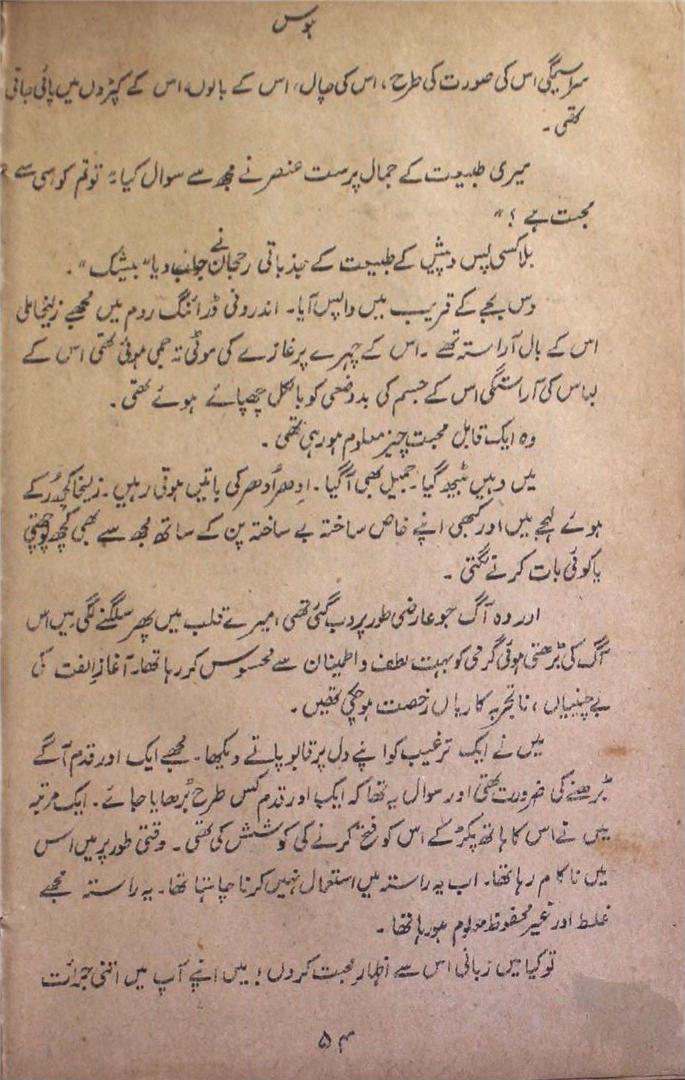 ہوس
سراسیمگی اس کی صورت کی طرح، اس کی چال، اس کے بالوں، اس کے کپڑوں میں پائی جاتی
تھی۔
میری طبیعت کے جمال پرست عنصر نے مجھ سے سوال کیا "تو تم کو اسی سے
محبت ہے؟"
بلا کسی پس و پیش کے طبیعت کے جذباتی رجحان نے جواب دیا "بیشک"۔
دس بجے کے قریب میں واپس آیا۔ اندرونی ڈرائنگ روم میں مجھے زلیخا ملی
اس کے بال آراستہ تھے۔ اس کے چہرے پر غازے کی موٹی تہ جمی ہوئی تھی اس کے
لباس کی آراستگی اس کے جسم کی بدوضعی کو بالکل چھپائے ہوئے تھی۔
وہ ایک قابل محبت چیز معلوم ہو رہی تھی۔
میں وہیں بیٹھ گیا۔ جمیل بھی آ گیا۔ اِدھر اُدھر کی باتیں ہوتی رہیں۔ زلیخا کچھ رُکے
ہوئے لہجے میں اور کبھی اپنے خاص ساختہ بے ساختہ پن کے ساتھ مجھ سے بھی کچھ پوچھتی
یا کوئی بات کرنے لگتی۔
اور وہ آگ جو عارضی طور پر دب گئی تھی، میرے قلب میں پھر سلگنے لگی میں اس
آگ کی بڑھتی ہوئی گرمی کو بہت لطف و اطمینان سے محسوس کر رہا تھا۔ آغازِ الفت کی
بے چینیاں، ناتجربہ کاریاں رخصت ہو چکی تھیں۔
میں نے ایک ترغیب کو اپنے دل پر قابو پاتے دیکھا۔ مجھے ایک اور قدم آگے
بڑھنے کی ضرورت تھی اور سوال یہ تھا کہ ایک اور قدم کس طرح بڑھایا جائے۔ ایک مرتبہ
میں نے اس کا ہاتھ پکڑ کے اس کو فتح کرنے کی کوشش کی تھی۔ وقتی طور پر میں اس
میں ناکام رہا تھا۔ اب یہ راستہ میں استعمال نہیں کرنا چاہتا تھا۔ یہ راستہ مجھے
غلط اور غیر محفوظ معلوم ہو رہا تھا۔
تو کیا میں زبانی اس سے اظہارِ محبت کروں؟ میں اپنے آپ میں اتنی جرائت
۵۴